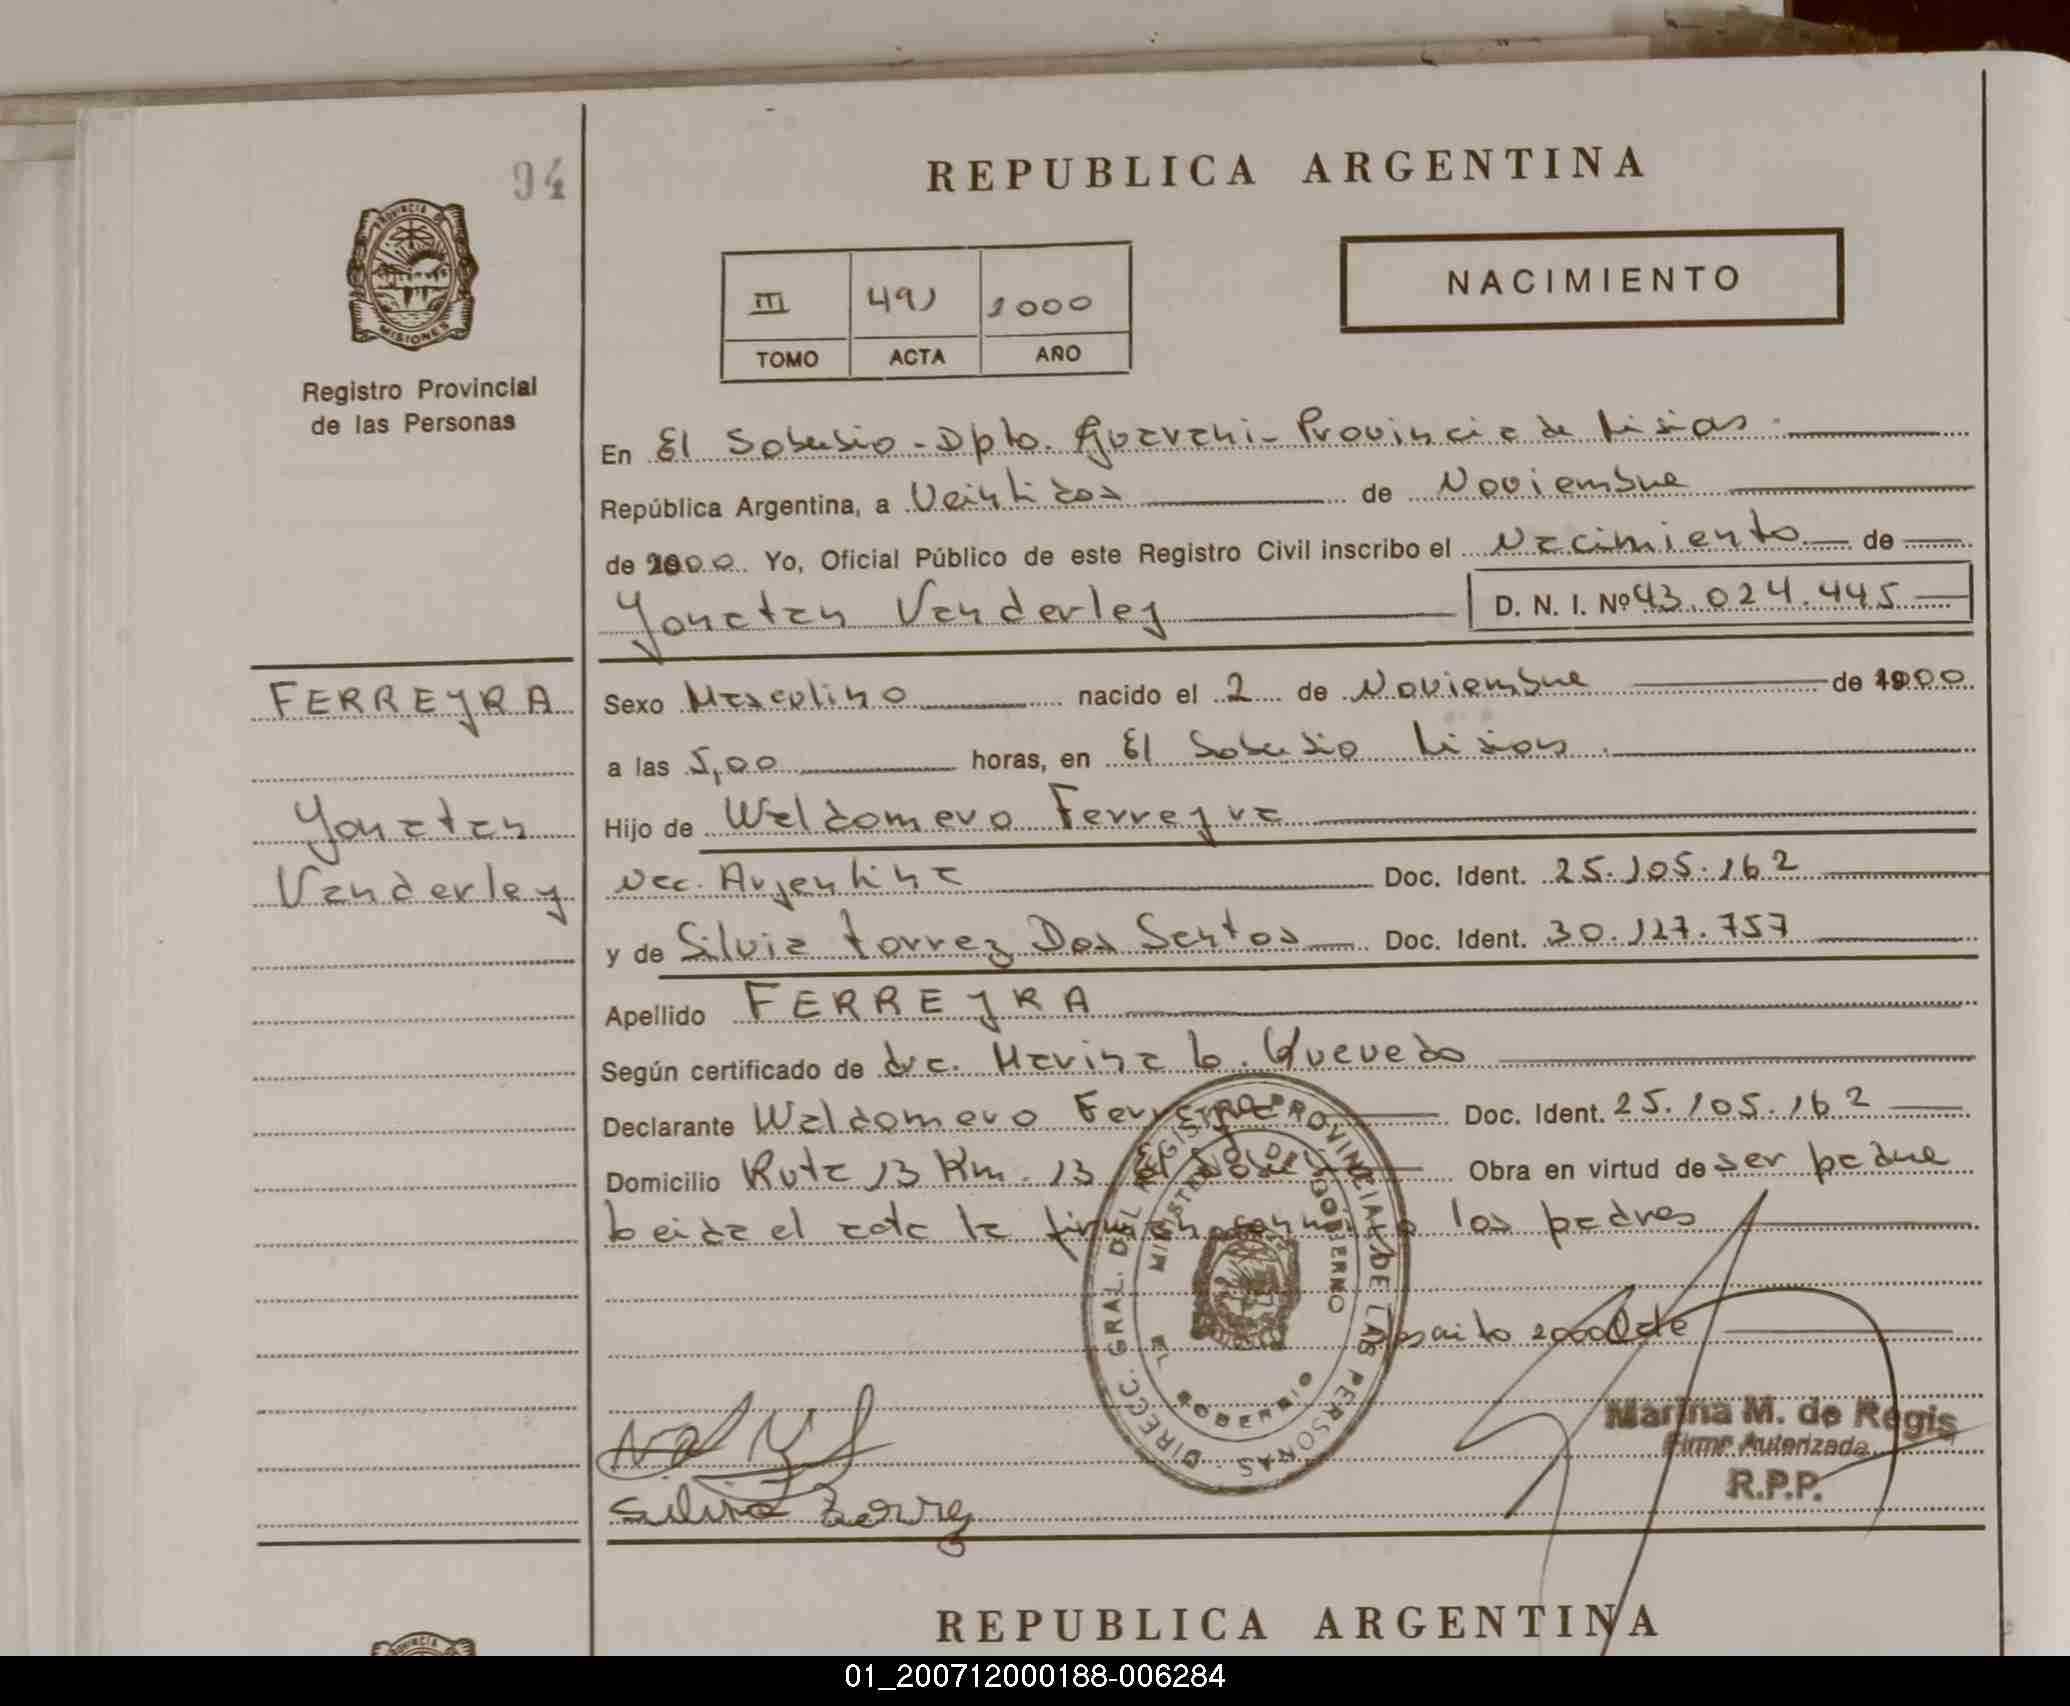 94
REPUBLICA ARGENTINA
PROVINCIA DE
MISIONES
Registro Provincial
de las Personas
III 491 2000
TOMO ACTA AÑO
NACIMIENTO
En El Soberbio - Dpto. Guarani - Provincia de Misiones.
República Argentina, a Veintidos de Noviembre
de 2000 Yo, Oficial Público de este Registro Civil inscribo el Nacimiento de
Yonatan Vanderley D. N. I. Nº 43.024.445
FERREYRA
Sexo Masculino nacido el 2 de Noviembre de 2000
a las 5,00 horas, en El Soberbio Misiones.
Yonatan
Hijo de Waldomero Ferreyra
Vanderley
Nac. Argentina Doc. Ident. 25.105.162
y de Silvia Torrez Dos Santos Doc. Ident. 30.127.757
Apellido FERREYRA
Según certificado de dra. Marina L. Quevedo
Declarante Waldomero Ferreyra Doc. Ident. 25.105.162
Domicilio Ruta 13 Km. 13 El Soberbio Obra en virtud de ser padre
Leida el acta la firman conmigo los padres
2000 Vale
DIRECC. GRAL. DEL REGISTRO PROVINCIAL DE LAS PERSONAS
MINISTERIO DE GOBIERNO
EL SOBERBIO
Marina M. de Regis
Firma Autorizada
R.P.P.
Silvia Torrez
REPUBLICA ARGENTINA
01_200712000188-006284